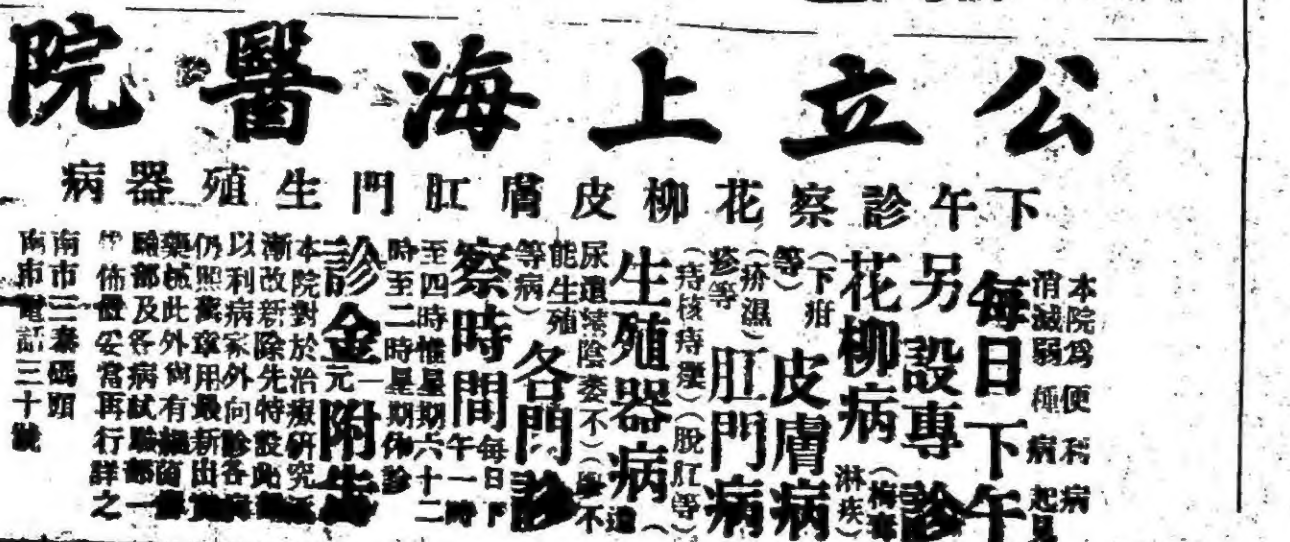 公立上海醫院
下午診察花柳皮膚肛門生殖器病
本院爲便利病
消滅弱種病起見
每日下午
另設專診
花柳病（梅毒
淋疾）
（下疳
等）皮膚病
（疥濕
疹等）肛門病
（痔核痔瘻）（脫肛等）
生殖器病（遺
尿遺陰痿不）（學不
能生殖
等病）各門診
察時間每日下
午一時
至四時惟星期六十二
時至二時星期休診
診金一元附告
本院對於治療研究
漸改新除先特設此
以利病家外向診各病
仍照舊章用最新出
藥械此外尙有
驗部及各病試驗部一
佈置妥當再行詳之
南市三泰碼頭
南市電話三十號